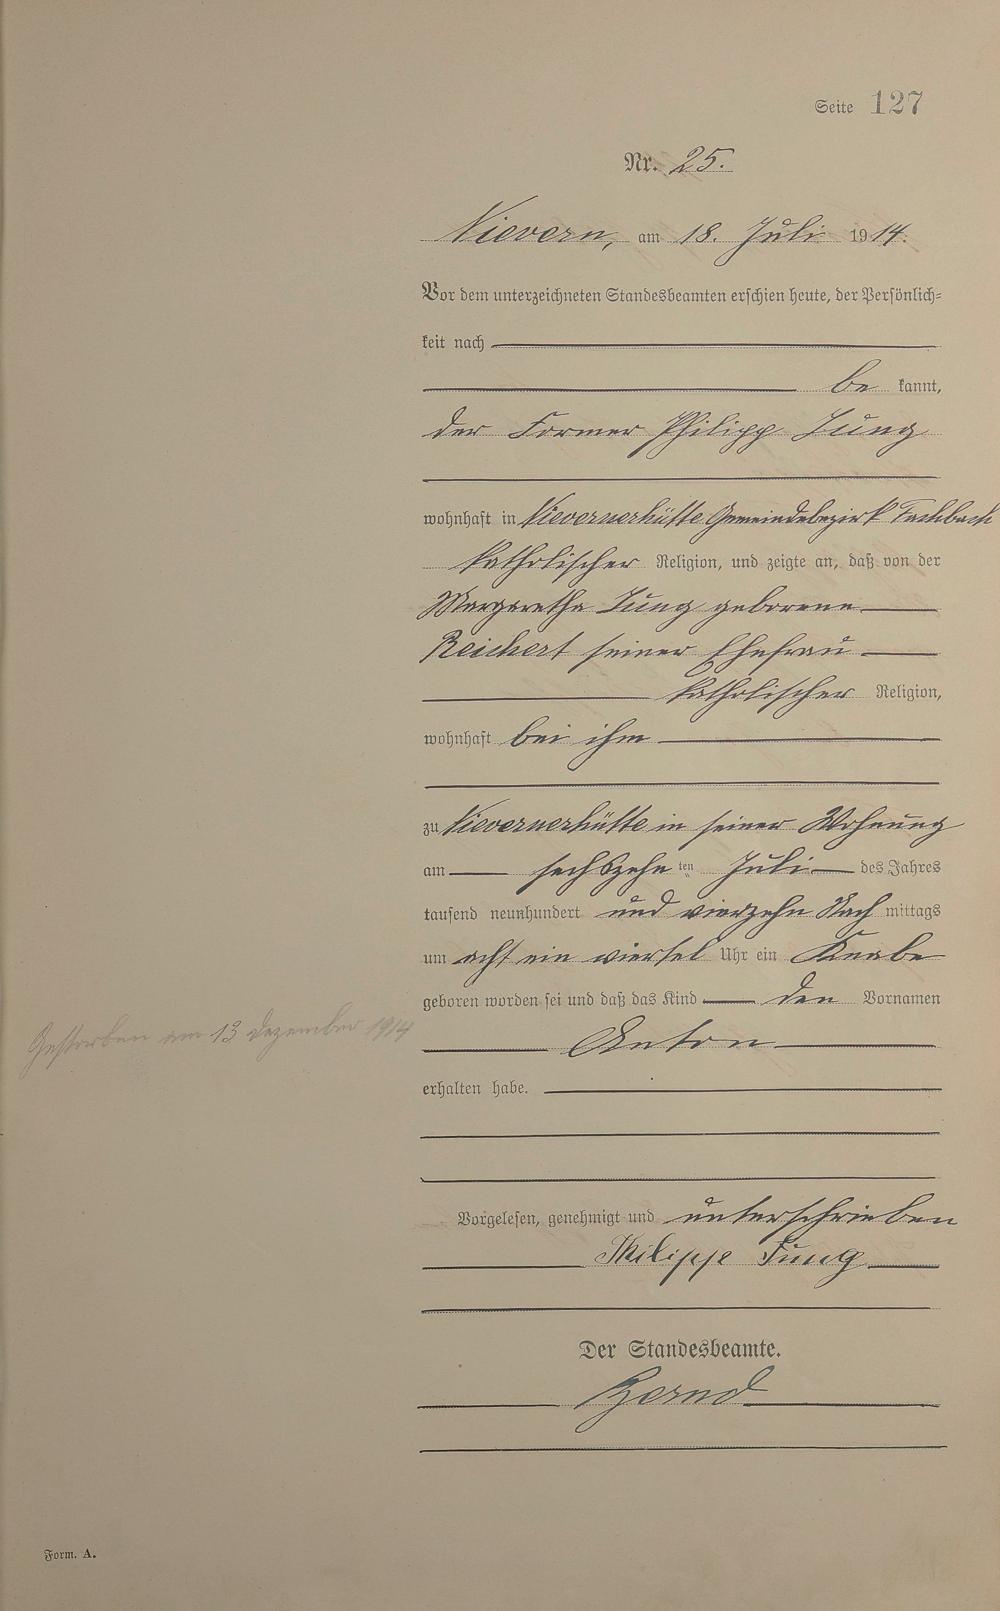 Seite 127
Nr. 25.
Nievern, am 18. Juli 1914.
Vor dem unterzeichneten Standesbeamten erschien heute, der Persönlich=
keit nach
be kannt,
der Former Philipp Jung
wohnhaft in Nievernerhütte Gemeindebezirk Fachbach
katholischer Religion, und zeigte an, daß von der
Margaretha Jung geborene
Reichert seiner Ehefrau
katholischer Religion,
wohnhaft bei ihm
zu Nievernerhütte in seiner Wohnung
am sechszehn ten Juli des Jahres
tausend neunhundert und vierzehn Nach mittags
um acht ein viertel Uhr ein Knabe
geboren worden sei und daß das Kind den Vornamen
Gestorben am 13 Dezember 1914
Anton
erhalten habe.
Vorgelesen, genehmigt und unterschrieben
Philipp Jung
Der Standesbeamte.
Form. A.